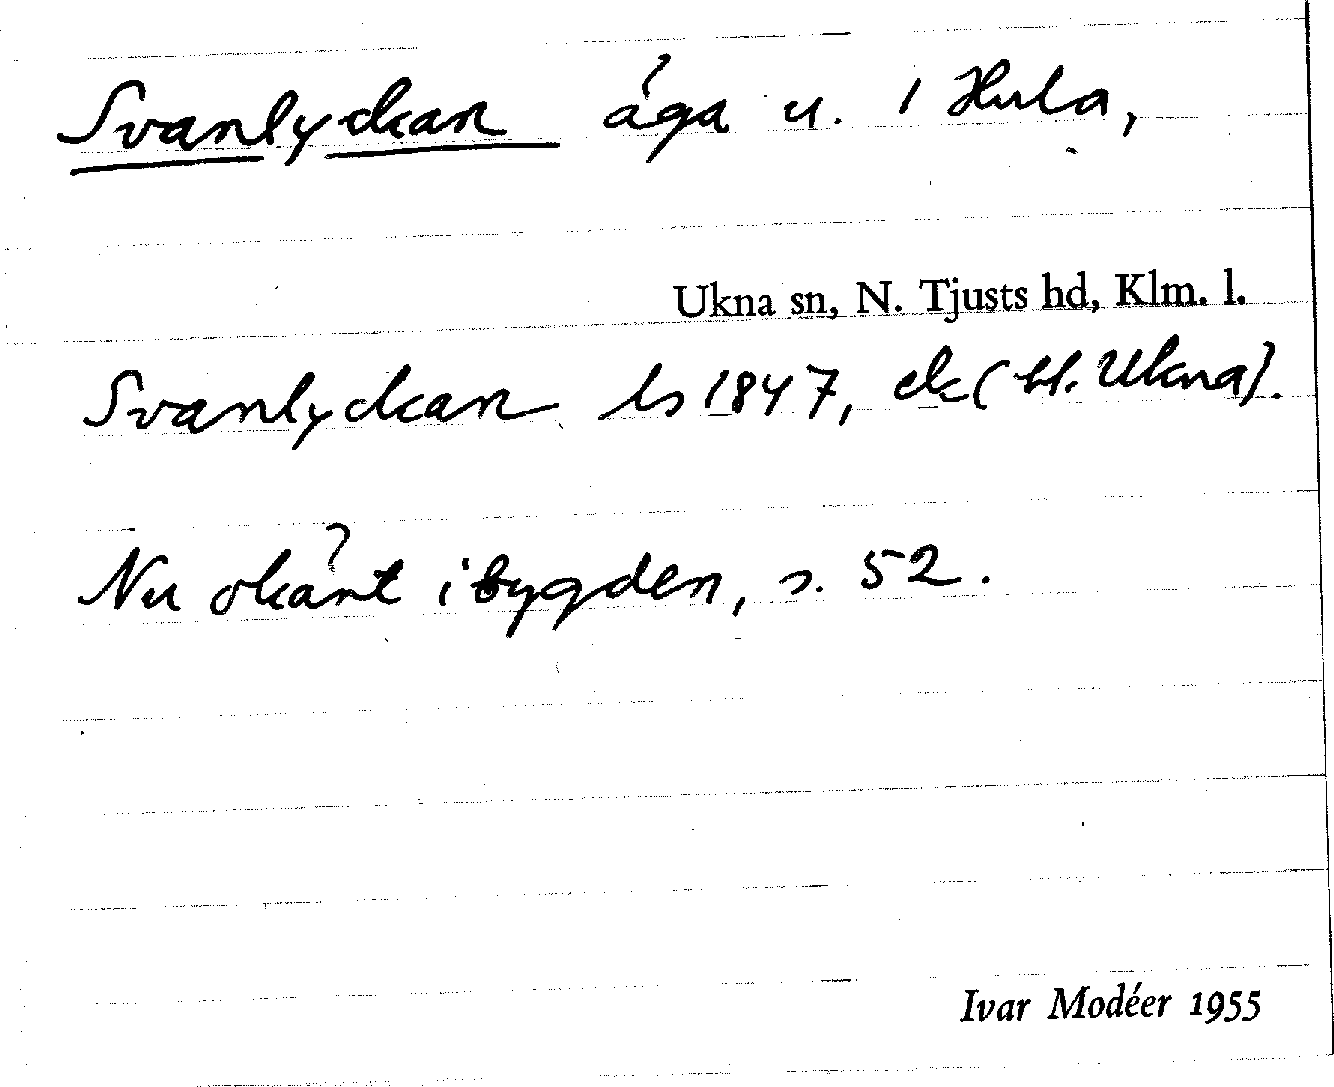 Svanlyckan äga u. 1 Hula,
Ukna sn, N. Tjusts hd, Klm. l.
Svanlyckan ls 1847, ek (bl. Ukna).
Nu okänt i bygden, s. 52.
Ivar Modéer 1955